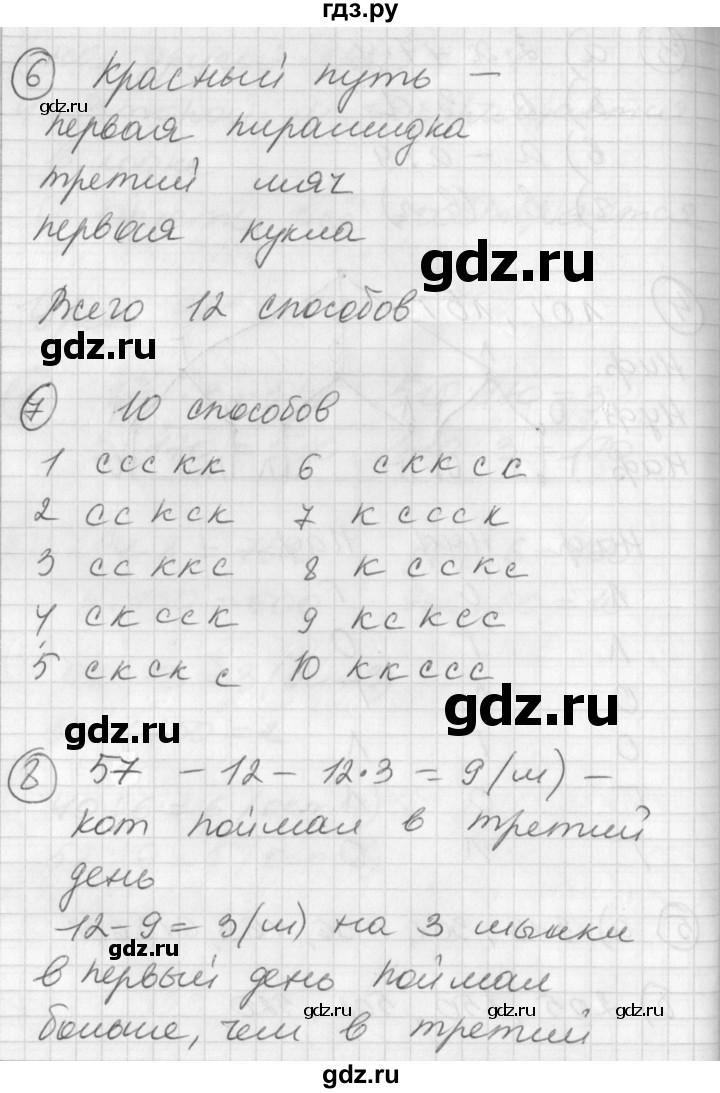 гдз.ру
6 Красный путь –
gdz.ru
первая пирамидка
третий мяч
первая кукла
gdz.ru
Всего 12 способов
gdz.ru
7 10 способов
1 ссс кк 6 сккcс
2 сс кск 7 к сссск
3 сс ккс 8 к сскс
4 ск сск 9 кскcс
5 скск с 10 ккссс
gdz.ru
gdz.ru
8 57 – 12 – 12·3 = 9 (м) –
кот поймал в третий
день
12 – 9 = 3 (м) на 3 мышки
gdz.ru
в первый день поймал
больше, чем в третий
gdz.ru